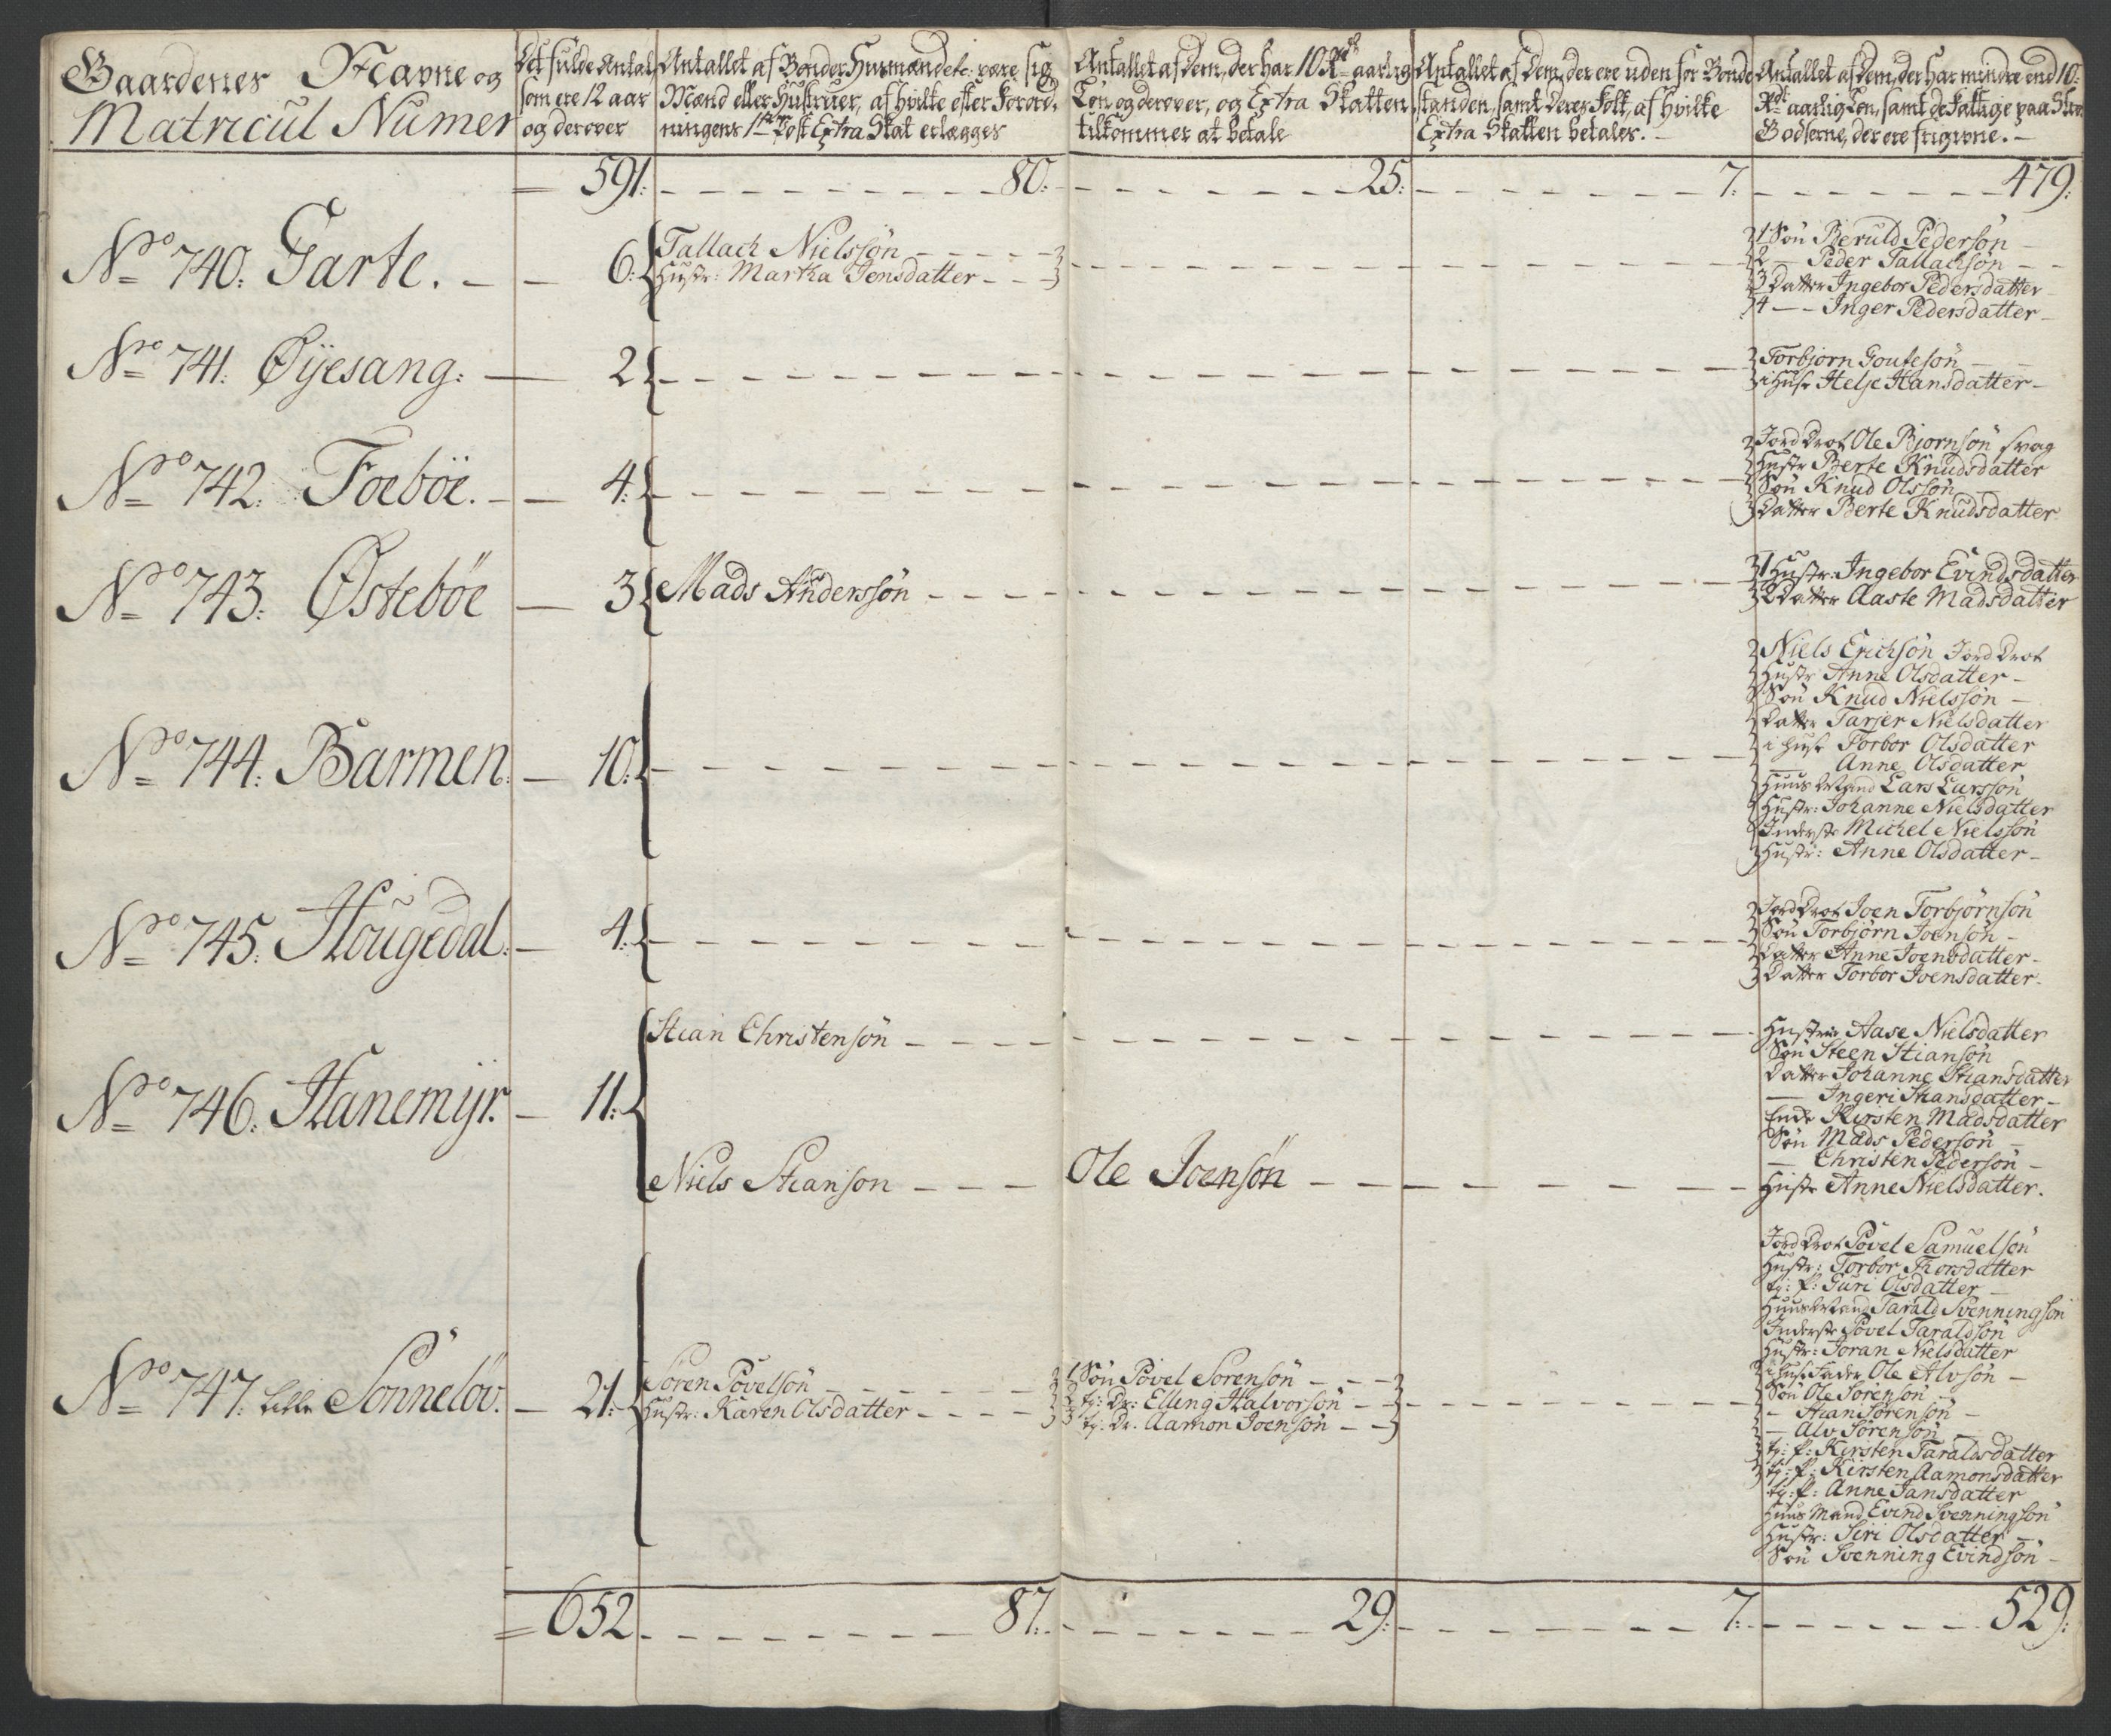 Gaardenes Navne og
Matricul Numer
Det fulde Antal
som ere 12 aar
og derover
Antallet af Bønder Husmænd etc: være sig
Mænd eller Hustruer, af hvilke efter Forord-
ningens 1ste Post Extra Skat erlægges
Antallet af dem, der har 10 Rd aarlig
Løn og derover, og Extra Skatten
tilkommer at betale
Antallet af dem, der ere uden for Bonde
standen, samt deres Folk, af hvilke
Extra Skatten betales. -
Antallet af dem, der har mindre end 10:
Rdr aarlig Løn, samt de Fattige paa
Godserne, der ere frigivne. -
591: 80: 25: 7: 479:
No 740: Garte. - 6:
Tallach Nielssøn
Hustr: Martha Jensdatter
1 Søn Beruld Pedersøn
2 - Peder Tallachsøn
3 Datter Ingebor Pedersdatter
4 - - Inger Pedersdatter
No 741: Øÿesang: 2
Torbjorn Goutesøn
i Huse Helje Hansdatter
No 742: Foebøe. - 4:
Jord Drot Ole Bjornsøn svag
Hustr Berte Knudsdatter
Søn Knud Olssøn
Datter Berte Knudsdatter
No 743: Østebøe 3
Mads Anderssøn
1 Hustr: Ingebor Evindsdatter
2 Datter Aaste Madsdatter
No 744: Barmen: 10:
Niels Erichsøn Jord Drot
Hustr Anne Olsdatter
Søn Knud Nielssøn
Datter Tarjer Nielsdatter
i Huse Torbor Olsdatter
- Anne Olsdatter
Huus Mand Lars Larssøn
Hustr: Johanne Nielsdatter
Inderste Michel Nielssøn
Hustr: Anne Olsdatter
No 745: Hougedal: 4:
Jord Drot Joen Torbjørnsøn
Søn Torbjørn Joensøn
Datter Anne Joensdatter
Datter Torbor Joensdatter
No 746: Hanemijr. 11:
Stian Christensøn
Hustrue Aase Nielsdatter
Søn Steen Stiansøn
Datter Johanne Stiansdatter
- Ingeri Stiansdatter
Enke Kirsten Madsdatter
Søn Mads Pedersøn
- Christen Pedersøn
Niels Stianson
Ole Joensøn
Hustr Anne Nielsdatter.
No 747: Lille Sonneløv. 21:
Søren Povelsøn
Hustr: Karen Olsdatter
1 Søn Povel Sorensøn
2 tj: Dr: Elling Halvorsøn
3 tj: Dr. Aamon Joensøn
Jord Drot Povel Samuelsøn
Hustr: Torbor Thorsdatter
tj: P: Guri Olsdatter
Huus Mand Tarald Svenningsøn
Inderste Povel Taraldsøn
Hustr: Joran Nielsdatter
i Huse Fader Ole Alvsøn
Søn Ole Sørensøn
- Stian Sørensøn
- Alv Sørensøn
tj: P: Kirsten Taraldsdatter
tj: P: Kirsten Aamonsdatter
tj: P: Anne Jansdatter
Huus Mand Evind Svenningsøn
Hustr: Siri Olsdatter
Søn Svenning Evindsøn
652 87: 29: 7: 529: